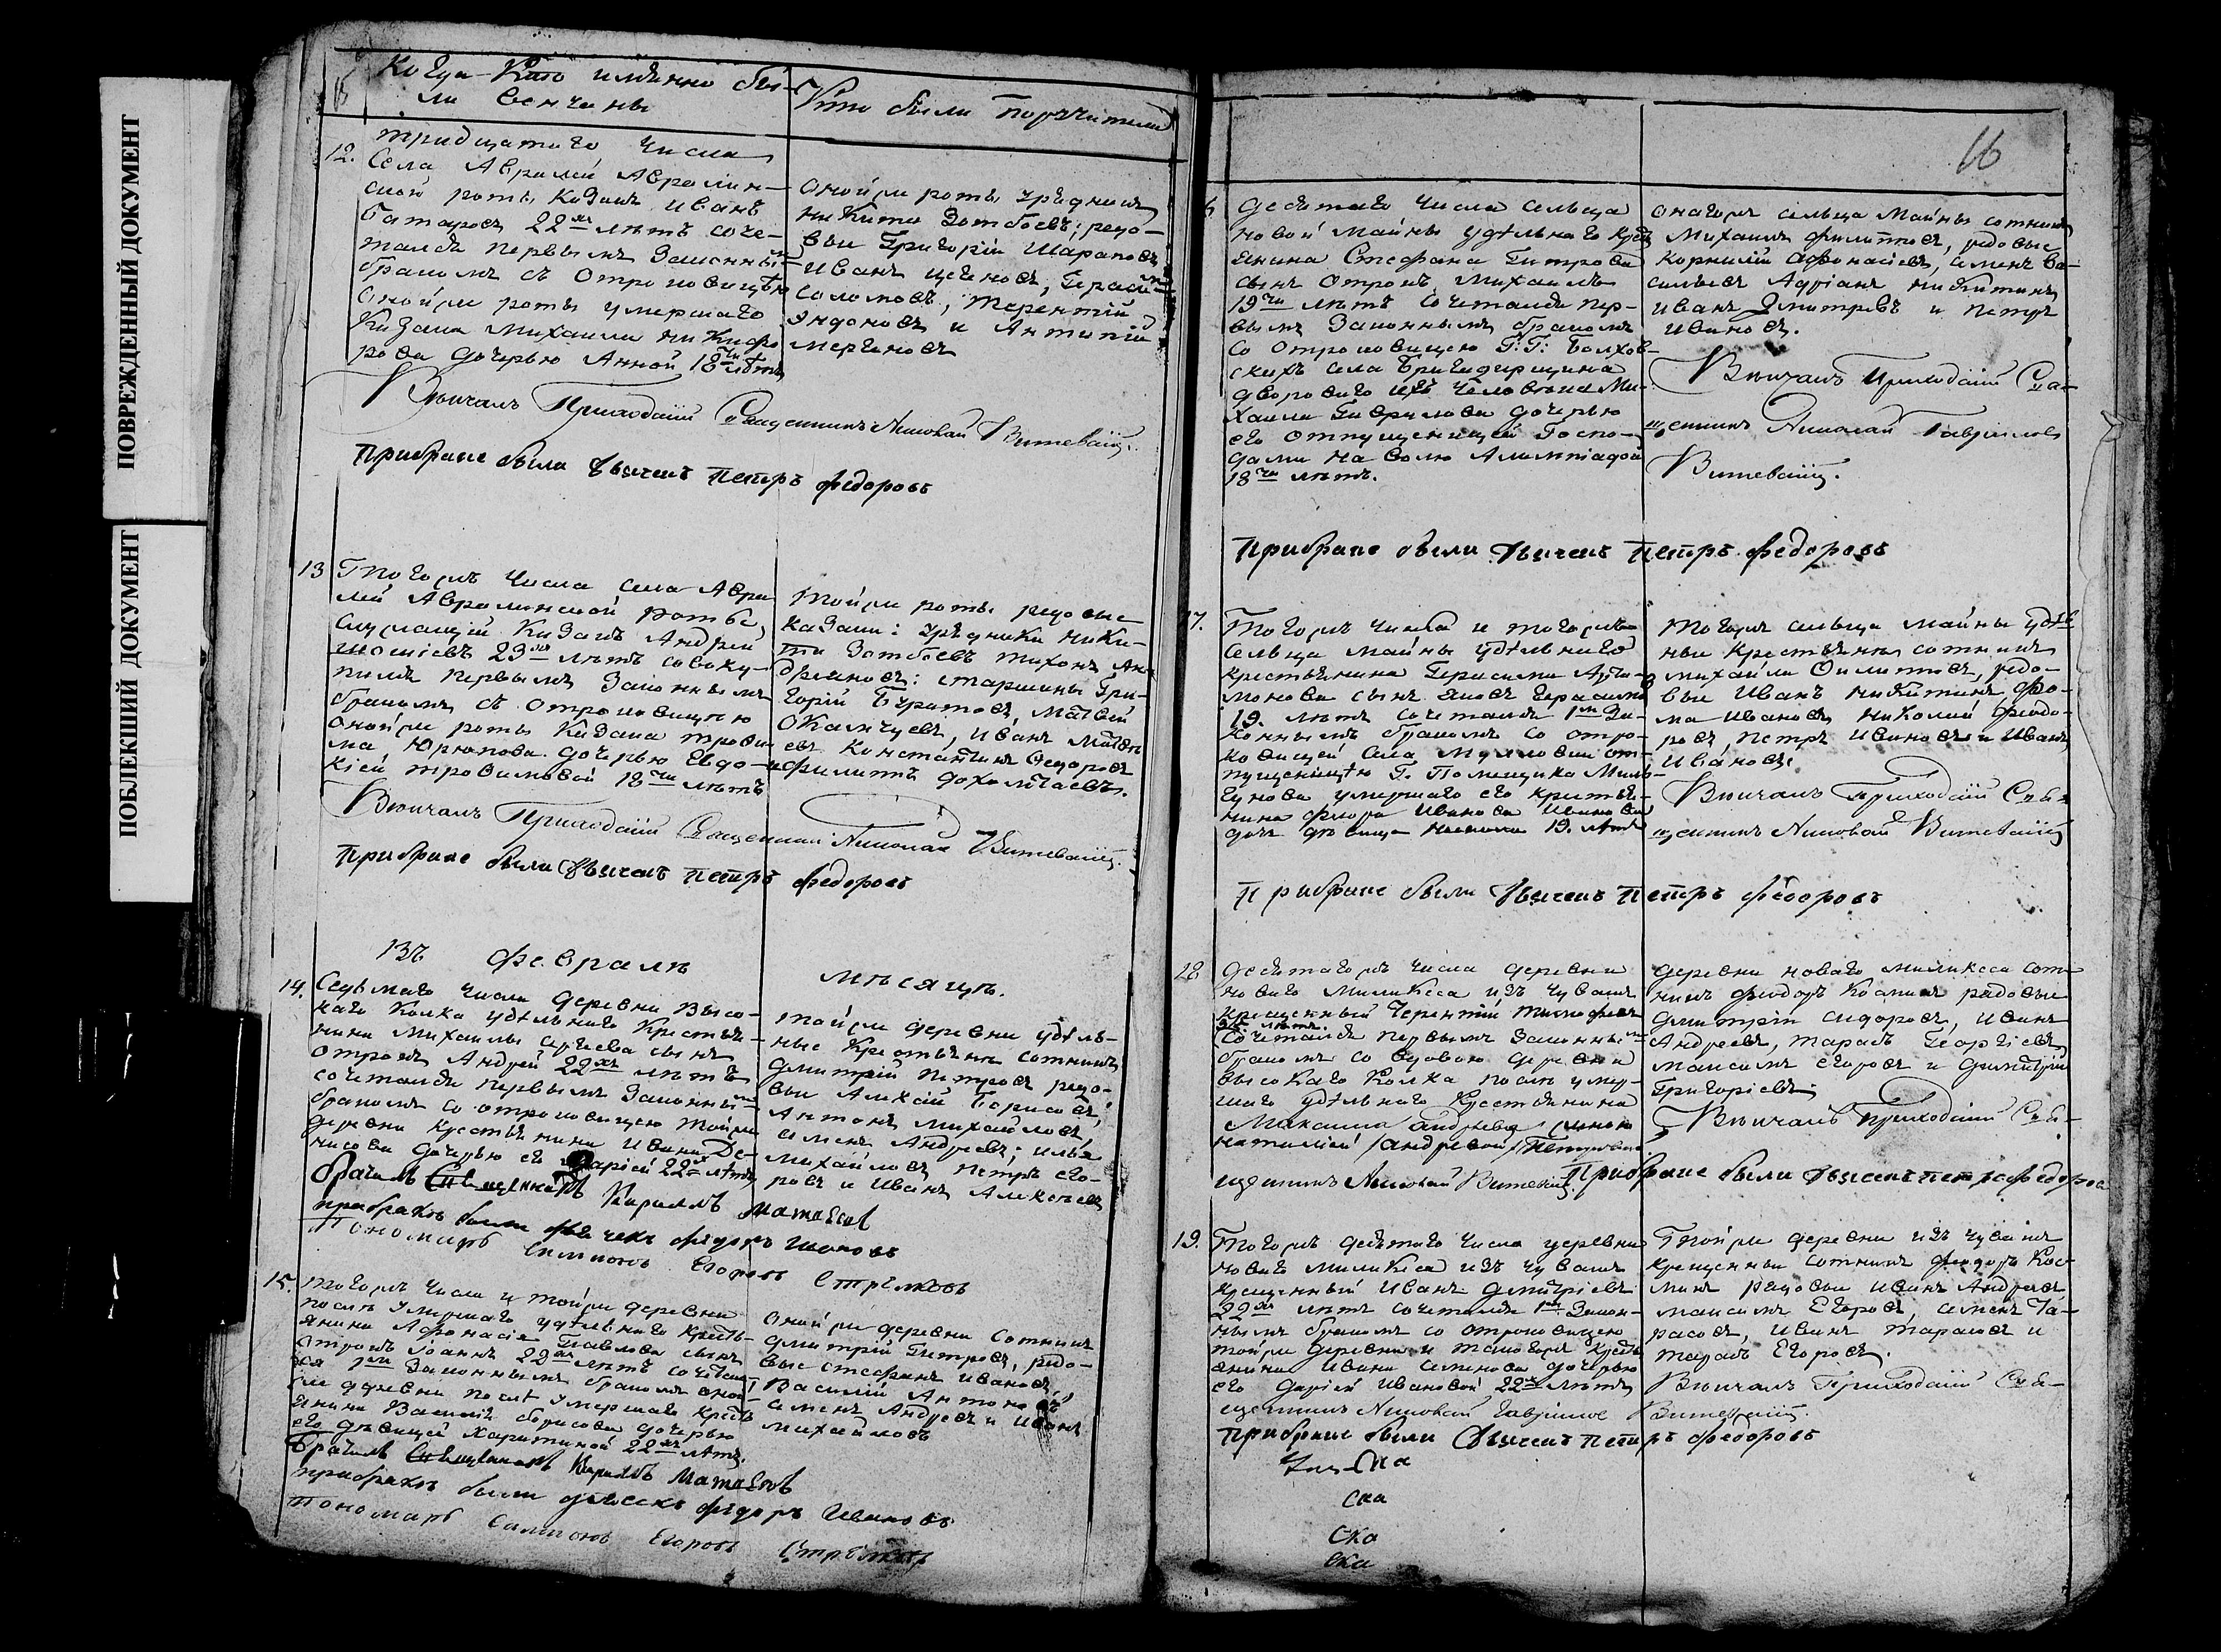 ПОВРЕЖДЕННЫЙ ДОКУМЕНТ
ПОБЛЕКШИЙ ДОКУМЕНТ
Когда Кто имянно бы-
ли венчаны
Кто были поручители
тридцатаго числа
12. Села Авралей Авралин-
ской роты Козакъ Иванъ
22хъ лѣтъ соче-
тался первымъ законнымъ
бракомъ съ отроковицею
оной же роты умершаго
Козака Михаила Никифо
рова дочерью Анной 18ти лѣтъ
оной же роты урядникъ
Никита Зотбоевъ; редо-
вые Григорій Шараповъ
Иванъ Герасимъ
Соломовъ, Терентій
и Антипій
Венчалъ Приходскій Священникъ Николай Витевскій.
При браке были дьячекъ Петръ Федоровъ
13 Тогожъ числа села Авра
лей Авралинской роты
служащій Козакъ Андрей
23хъ лѣтъ совоку-
пился первымъ законнымъ
бракомъ съ отроковицею
оной же роты Козака Трофи
ма Юрюпова дочерью Евдо-
кіей Трофимовой 18ти лѣтъ
той же роты редовые
казаки: урядники Ники-
та Зотбоевъ Тихонъ Ан-
дреяновъ: старшины Гри-
горій Матвей
Иванъ Матве
евъ Константинъ Федоровъ
и Филиппъ
Венчалъ Приходскій Священникъ Николай Витевскій.
При браке были дьячекъ Петръ Федоровъ
Въ Февралѣ
мѣсяцѣ.
14. Седьмаго числа деревни Высо-
каго Колка удѣльнаго крестья-
нина Михаилы Сергѣева сынъ
отрокъ Андрей 22хъ лѣтъ
сочетался первымъ законнымъ
бракомъ со отроковицею той же
деревни крестьянина Ивана Де-
нисова дочерью его Дарьей 22хъ лѣтъ
той же деревни удѣль-
ные крестьяне сотникъ
Дмитрій Петровъ редо-
вые Алексѣй Борисовъ,
Антонъ Михайловъ,
Семенъ Андреевъ; Илья
Михайловъ, Петръ Его-
ровъ и Иванъ Алексѣевъ
брачилъ Священникъ Кириллъ Матвеевъ
при бракѣ были дьячекъ Федоръ Ивановъ
Пономарь Симионъ Егоровъ Стрѣлковъ
15. тогожъ числа и той же деревни
послѣ умершаго удѣльнаго кресть-
янина Афонасія Павлова сынъ
отрокъ Іоаннъ 22хъ лѣтъ сочетал-
ся 1мъ законнымъ бракомъ оной
же деревни послѣ умершаго кресть
янина Василья Борисова дочерью
его дѣвицей Харитиной 22хъ лѣтъ.
оной же деревни сотникъ
Дмитрій Петровъ, редо-
вые Стефанъ Ивановъ,
Василій Антоновъ
Семенъ Андреевъ и Иванъ
Михайловъ
брачилъ Священникъ Кириллъ Матвеевъ
при бракѣ были дьячекъ Федоръ Ивановъ
Пономарь Симионъ Егоровъ Стрѣлковъ
16
Десятаго числа сельца
Новой Майны удѣльнаго крест
янина Стефана Петрова
сынъ отрокъ Михаилъ
19ти лѣтъ сочетался пер-
вымъ законнымъ бракомъ
со отроковицею Г:Г: Болхов-
скихъ села Бригадирщина
двороваго ихъ человѣка Ми-
хаила Гаврилова дочерью
его отпущенницей Госпо-
дами на волю Алимпіадой
18ти лѣтъ.
онагожъ сельца Майны сотникъ
Михаилъ Филипповъ, редовые
Корнилій Афонасіевъ, Семенъ Ва-
сильевъ Адріанъ Никитинъ
Иванъ Дмитревъ и Петръ
Ивановъ.
Венчалъ Приходскій Свя-
щенникъ Николай Гавріиловъ
Витевскій.
При браке были дьячекъ Петръ Федоровъ
17. Тогожъ числа и тогожъ
сельца Майны удѣльнаго
крестьянина Герасима Арта-
монова сынъ Яковъ Герасимо
19. лѣтъ сочетался 1мъ за-
коннымъ бракомъ со отро-
ковицей села от-
пущенницею Г. Помещика Миль-
гунова умершаго его крестья-
нина Флора Иванова Иванова
дочь дѣвица 19. лѣтъ
тогожъ сельца Майны удѣль
ные крестьяне сотникъ
Михайла Филиповъ, редо-
вые Иванъ Никитинъ, Фо-
ма Ивановъ, Николай Федо-
ровъ, Петръ Ивановъ и Иванъ
Ивановъ.
Венчалъ Приходскій Свя-
щенникъ Николай Витевскій
При браке были дьячекъ Петръ Федоровъ
18 Десятагожъ числа деревни
Новаго Миликеса изъ чувашъ
крещенный Терентій Тимофеевъ
лѣтъ.
сочетался первымъ законнымъ
бракомъ со вдовою деревни
Высокаго Колка послѣ умер-
шаго удѣльнаго крестьянина
Максима Андреева женою
Наталіей /Андревой/
деревни Новаго Миликеса сот-
никъ Федоръ Косминъ редовые
Дмитрій Сидоровъ, Иванъ
Андреевъ, Тарасъ Георгіевъ,
Максимъ Егоровъ и Димитрій
Григорьевъ.
Венчалъ Приходскій Свя-
щенникъ Николай Витевскій При браке были дьячекъ Петръ Федоровъ
19. Тогожъ десятаго числа деревни
Новаго Миликеса изъ чувашъ
крещенный Иванъ Дмитріевъ
22хъ лѣтъ сочетался 1мъ закон-
нымъ бракомъ со отроковицею
той же деревни и такогожъ кресть
янина Ивана Семенова дочерью
его Дарьей Ивановой 22хъ лѣтъ
Той же деревни изъ чувашъ
крещенныи сотникъ Федоръ Кос-
минъ редовыи Иванъ Андреевъ
Максимъ Егоровъ, Семенъ Та-
расовъ, Иванъ Тарасовъ и
Тарасъ Егоровъ.
Венчалъ Приходскій Свя-
щенникъ Николай Гавріиловъ Витевскій.
При браке были дьячекъ Петръ Федоровъ
ска
ска
ска